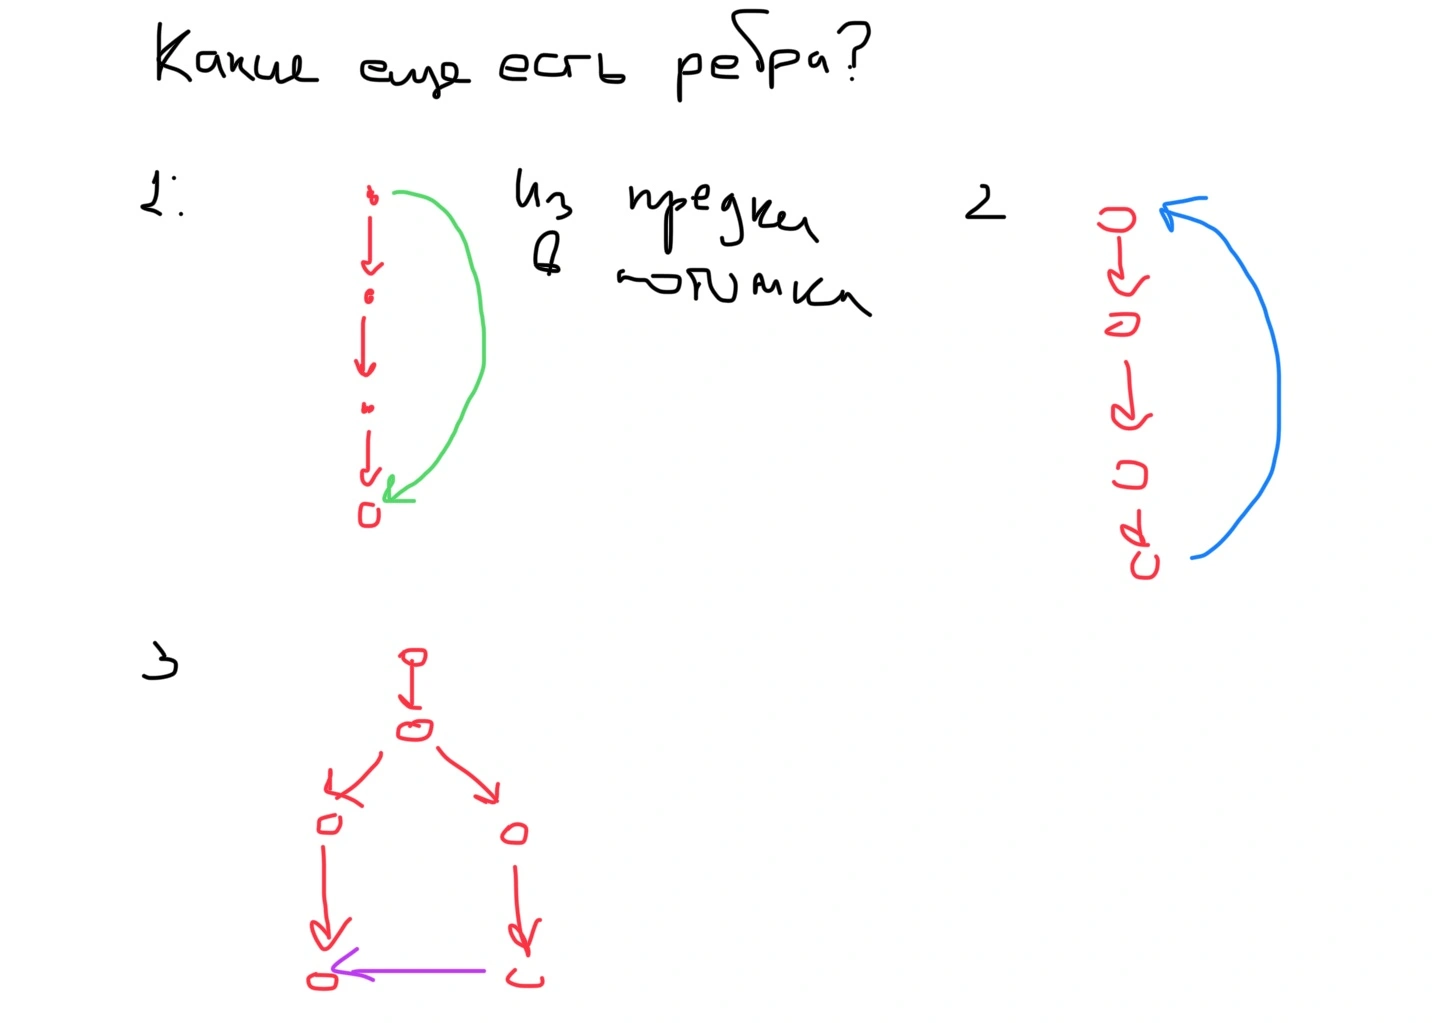 Какие еще есть ребра?
1:
Из предка
в потомка
2
3